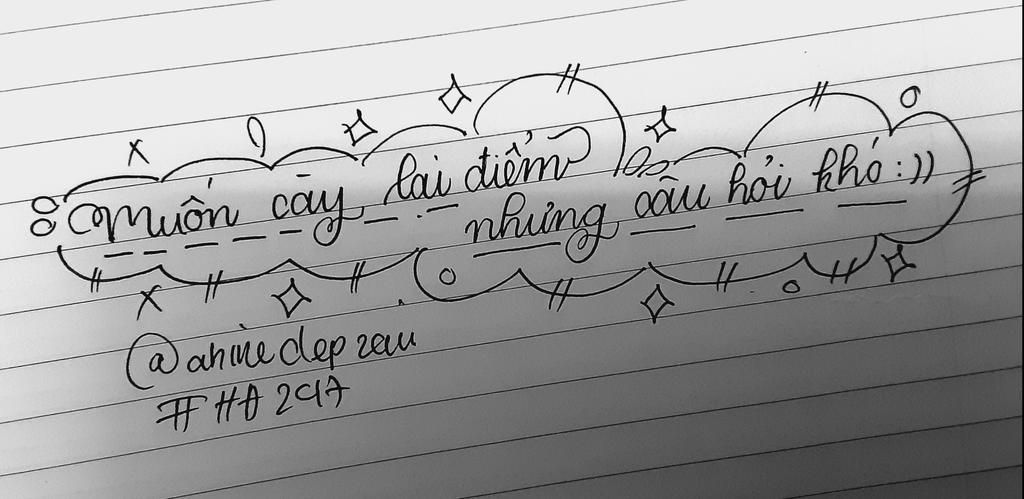 Muốn cày lại điểm
nhưng câu hỏi khó:))
@anime dep zau
#HA 2k7